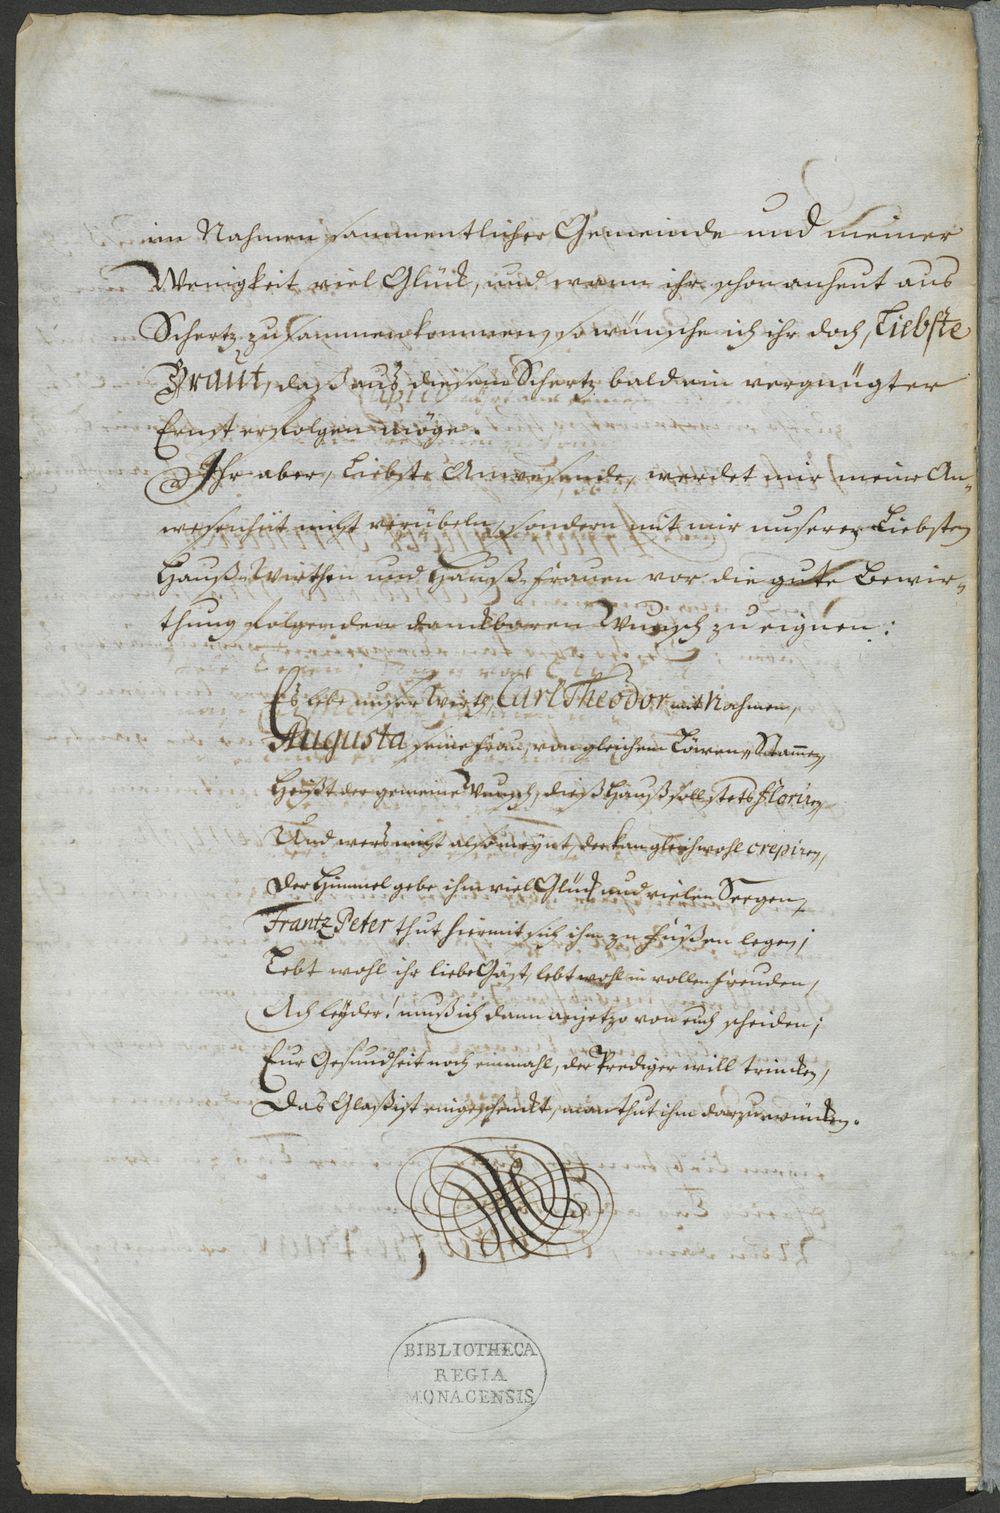 im Nahmen sammentlicher Gemeinde und meiner
Wenigkeit viel Glück, und wann ihr schon anheut aus
Schertz zusammenkommen, so wünsche ich ihr doch, Liebste
Braut, daß aus diesem Schertz bald ein vergnügter
Ernst erfolgen möge.
Ihr aber, Liebste Anwesende, werdet mir meine An„
wesenheit nicht verübeln, sondern mit mir unseren Liebsten
Hauß-Wirthen und Hauß-Frauen vor die gute Bewir„
thung folgenden danckbaren Wunsch zu eignen:
Es lebe unser Wirth, Carl Theodor mit Nahmen,
Augusta seine Frau, von gleichem Löwen„Stam̄en,
Heißt der gemeine Wunsch, dieß Hauß soll stets floriren,
Und wers nicht also meynt, der kan gleichwohl crepiren,
Der Himmel gebe ihm viel Glück und vielen Seegen,
Frantz Peter thut hiermit sich ihm zu Füßen legen;
Lebt wohl ihr liebe Gäst, lebt wohl in vollen Freuden,
Ach leyder! muß ich dann anjetzo von euch scheiden;
Eur Gesundheit noch einmahl, der Prediger will trincken,
Das Glaß ist eingeschenckt, man thut ihm darzu wüncken.
BIBLIOTHECA
REGIA
MONACENSIS